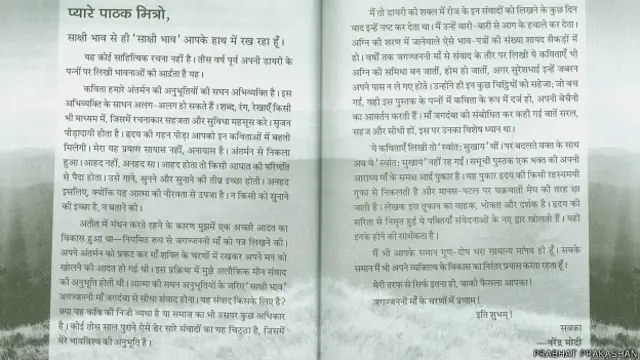 प्यारे पाठक मित्रो,
साक्षी भाव से ही 'साक्षी भाव' आपके हाथ में रख रहा हूँ।
यह कोई साहित्यिक रचना नहीं है। तीस वर्ष पूर्व अपनी डायरी के
पन्नों पर लिखी भावनाओं की आर्द्रता है यह।
कविता हमारे अंतर्मन की अनुभूतियों की सघन अभिव्यक्ति है। इस
अभिव्यक्ति के साधन अलग-अलग हो सकते हैं। शब्द, रंग, रेखाएँ किसी
भी माध्यम में, जिसमें रचनाकार सहजता और सुविधा महसूस करे। सृजन
पीड़ादायी होता है। हृदय की गहन पीड़ा आपको इन कविताओं में बहती
मिलेगी। मेरा यह प्रयास सायास नहीं, अनायास है। अंतर्मन से निकला
हुआ। आहद नहीं, अनहद सा। आहद होता तो किसी आघात की परिणति
से पैदा होता। उसे गाने, सुनने और सुनाने की तीव्र इच्छा होती। अनहद
इसलिए, क्योंकि यह आत्मा की नीरवता से उपजा है। न किसी को सुनाने
की इच्छा है, न बताने की।
अतीत में मंथन करते रहने के कारण मुझमें एक अच्छी आदत का
विकास हुआ था—नियमित रूप से जगज्जननी माँ को पत्र लिखने की।
अपने अंतर्मन को प्रकट कर माँ शक्ति के चरणों में रखकर अपने मन को
खोलने की आदत हो गई थी। इस प्रक्रिया में मुझे अलौकिक मौन संवाद
की अनुभूति होती थी। आत्मा की सघन अनुभूतियों के जरिए 'साक्षी भाव'
जगज्जननी माँ जगदंबा से सीधा संवाद होना। यह संवाद किसके लिए है?
क्या यह कवि की निजी व्यथा है या समाज का भी उसपर कुछ अधिकार
है। कोई तीस साल पुराने ऐसे ढेर सारे संवादों का यह चिट्ठा है, जिसमें
मेरे भावविश्व की अनुभूति है।
मैं तो डायरी की शक्ल में रोज के इन संवादों को लिखने के कुछ दिन
बाद इन्हें नष्ट कर देता था। मैं उन्हें बारी-बारी से आग के हवाले कर देता।
अग्नि की शरण में जानेवाले ऐसे भाव-पत्रों की संख्या शायद सैकड़ों में
हो। वर्षों तक जगज्जननी माँ से संवाद के तौर पर लिखी ये कविताएँ भी
अग्नि की समिधा बन जातीं, होम हो जातीं, अगर सुरेशभाई इन्हें जबरन
अपने पास न ले गए होते। उन्होंने ही इन कुछ चिट्ठियों को सहेजा; जो बच
गईं, वही इस पुस्तक के पन्नों में कविता के रूप में दर्ज हो, अपनी बेचैनी
का आवर्तन करती हैं। माँ जगदंबा को संबोधित कर कही गई बातें सरल,
सहज और सीधी हों, इस पर उनका विशेष ध्यान था।
ये कविताएँ लिखी तो 'स्वांत: सुखाय' थीं। पर बदलते वक्त के साथ
अब ये 'स्वांत: सुखाय' नहीं रह गईं। समूची पुस्तक एक भक्त की अपनी
आराध्य माँ के समक्ष आर्द्र पुकार है। यह पुकार हृदय की किसी रहस्यमयी
गुफा से निकलती है और मानस-पटल पर चक्रवाती मेघ की तरह छा
जाती है। लेखक इस तूफान का वाहक, भोक्ता और दर्शक है। हृदय की
सरिता से निसृत हुई ये पंक्तियाँ संवेदनाओं के नए द्वार खोलती हैं। यही
इनके होने की सार्थकता है।
मैं भी आपके समान गुण-दोष भरा सामान्य मानव ही हूँ। सबके
समान मैं भी अपने व्यक्तित्व के विकास का निरंतर प्रयास करता रहता हूँ।
मेरी तरफ से सिर्फ इतना ही, बाकी फैसला आपका!
जगज्जननी माँ के चरणों में प्रणाम!
इति शुभम्!
सबका
—नरेंद्र मोदी
PRABHAT PRAKASHAN